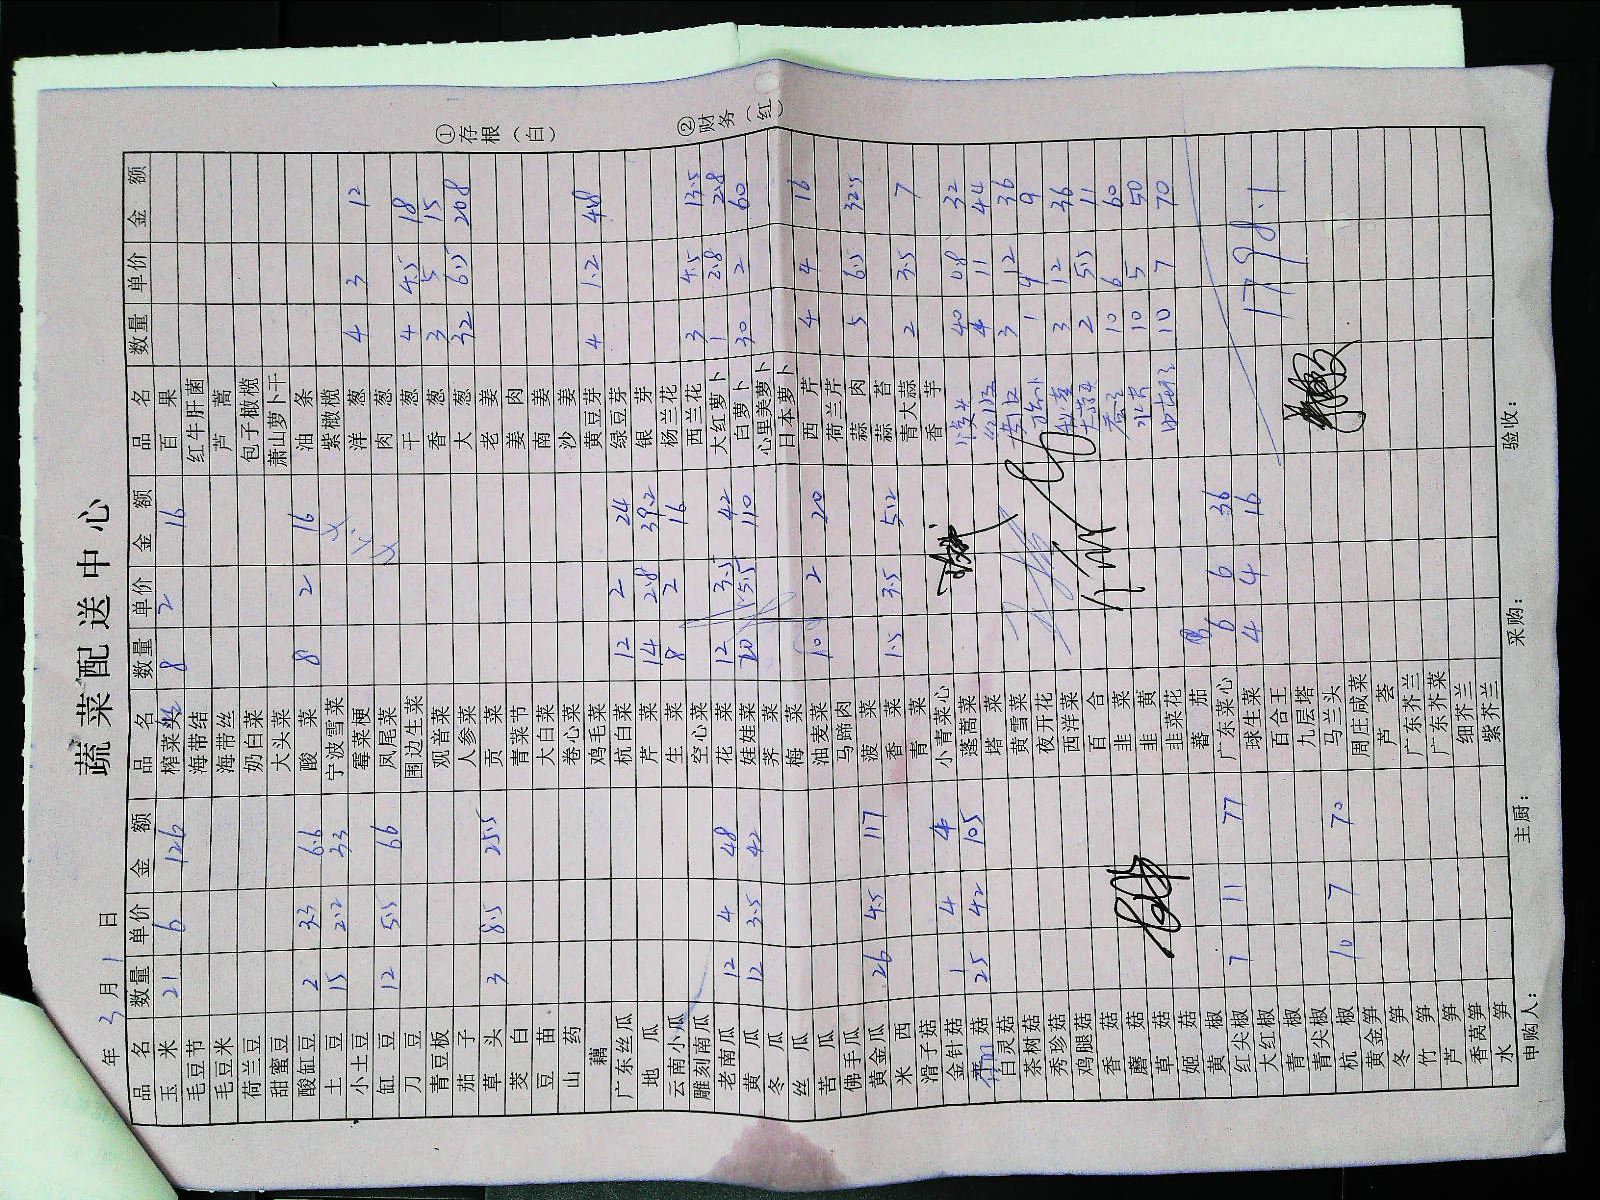 蔬菜配送中心
年 3 月 1 日
①存根（白）
②财务（红）
品名 数量 单价 金额 品名 数量 单价 金额 品名 数量 单价 金额
玉米 21 6 126 榨菜丝 8 2 16 百果
毛豆节 海带结 红牛肝菌
毛豆米 海带丝 芦蒿
荷兰豆 奶白菜 包子橄榄
甜蜜豆 大头菜 萧山萝卜干
酸缸豆 2 3.3 6.6 酸菜 8 2 16 油条
土豆 15 2.2 33 宁波雪菜 紫橄榄
小土豆 霉菜梗 洋葱 4 3 12
缸豆 12 5.5 66 凤尾菜 肉葱
刀豆 围边生菜 干葱 4 4.5 18
青豆板 观音菜 香葱 3 5 15
茄子 人参菜 大葱 32 6.5 208
草头 3 8.5 25.5 贡菜 老姜
茭白 青菜节 姜肉
豆苗 大白菜 南姜
山药 卷心菜 沙姜
藕 鸡毛菜 黄豆芽 4 1.2 4.8
广东丝瓜 杭白菜 12 2 24 绿豆芽
地瓜 芹菜 14 2.8 39.2 银芽
云南小瓜 生菜 8 2 16 杨兰花
雕刻南瓜 空心菜 西兰花 3 4.5 13.5
老南瓜 12 4 48 花菜 12 3.5 42 大红萝卜 1 2.8 2.8
黄瓜 12 3.5 42 娃娃菜 20 5.5 110 白萝卜 30 2 60
冬瓜 荠菜 心里美萝卜
丝瓜 梅菜 日本萝卜
苦瓜 油麦菜 10 2 20 西芹 4 4 16
佛手瓜 马蹄肉 荷兰芹
黄金瓜 26 4.5 117 菠菜 蒜肉 5 6.5 32.5
米西 香菜 1.5 3.5 5.2 蒜苔
滑子菇 青菜 青大蒜 2 3.5 7
金针菇 1 4 4 小青菜心 香芋
菇 25 4.2 105 蓬蒿菜 40 0.8 32
白灵菇 塔菜 4 11 44
茶树菇 黄雪菜 3 12 36
秀珍菇 夜开花 1 9 9
鸡腿菇 西洋菜 3 12 36
香菇 百合 大蒜头 2 5.5 11
蘑菇 韭菜 10 6 60
草菇 韭黄 10 5 50
姬菇 韭菜花 10 7 70
黄椒 蕃茄
红尖椒 7 11 77 广东菜心 6 6 36
大红椒 球生菜 4 4 16
青椒 百合王
青尖椒 九层塔
杭椒 10 7 70 马兰头
黄金笋 周庄咸菜
冬笋 芦荟
竹笋 广东芥兰
芦笋 广东芥菜
香莴笋 细芥兰
水笋 紫芥兰
1798.1
申购人： 主厨： 采购： 验收：